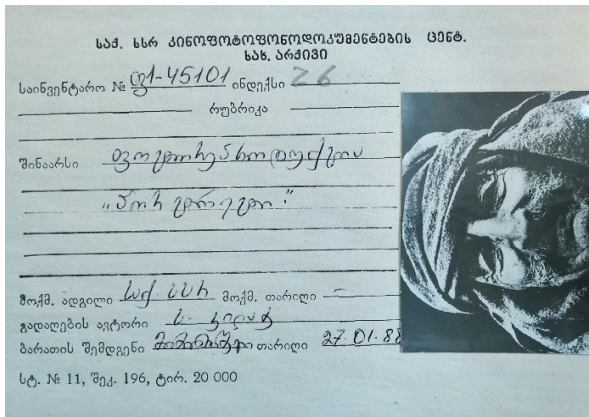 საქ. სსრ კინოფოტოფონოდოკუმენტების ცენტ.
სახ. არქივი
საინვენტარო № ფ1-45101 ინდექსი 26
რუბრიკა
შინაარსი ფოტორეპროდუქცია
„პორტრეტი“
მოქმ. ადგილი საქ. სსრ მოქმ. თარიღი —
გადაღების ავტორი ს.
ბარათის შემდგენი თარიღი 27.01.88
სტ. № 11, შეკ. 196, ტირ. 20 000